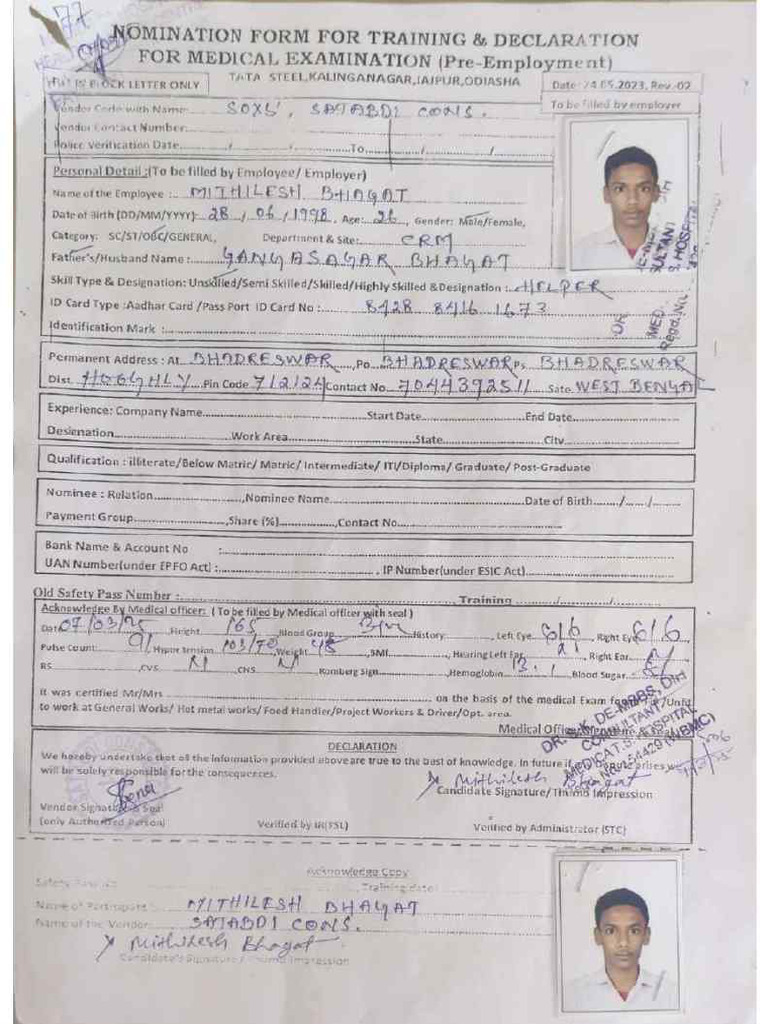 77
NOMINATION FORM FOR TRAINING & DECLARATION
FOR MEDICAL EXAMINATION (Pre-Employment)
TATA STEEL,KALINGANAGAR,JAJPUR,ODIASHA
BLOCK LETTER ONLY
Date: 24.05.2023, Rev.-02
To be filled by employer
Vendor Code with Name: SOX5, SATABDI CONS.
Vendor Contact Number:
Police Verification Date / / To / /
Personal Detail :(To be filled by Employee/ Employer)
Name of the Employee : MITHILESH BHAGAT
Date of Birth (DD/MM/YYYY): 28 / 06 / 1998, Age: 26, Gender: Male/Female,
Category: SC/ST/OBC/GENERAL, Department & Site: CRM
Father's/Husband Name : GANGASAGAR BHAGAT
Skill Type & Designation: Unskilled/Semi Skilled/Skilled/Highly Skilled & Designation : HELPER
ID Card Type :Aadhar Card /Pass Port ID Card No : 8428 8416 1673
Identification Mark :
Permanent Address : At BHADRESWAR, Po BHADRESWAR Ps BHADRESWAR
Dist. HOOGHLY Pin Code 712124 Contact No. 7044392511 Sate WEST BENGAL
Experience: Company Name Start Date End Date
Designation Work Area State City
Qualification : illiterate/Below Matric/ Matric/ Intermediate/ ITI/Diploma/ Graduate/ Post-Graduate
Nominee : Relation ,Nominee Name Date of Birth / /
Payment Group ,Share (%) ,Contact No
Bank Name & Account No :
UAN Number(under EPFO Act) : , IP Number(under ESIC Act)
Old Safety Pass Number : , Training / /
Acknowledge By Medical officer: ( To be filled by Medical officer with seal )
Date 07/03/25 Height 165 Blood Group History , Left Eye 6/6, Right Eye 6/6
Pulse Count: 91 Hyper tension 103/70, Weight 48, BMI , Hearing Left Ear , Right Ear N
RS , CVS N , CNS N Romberg Sign , Hemoglobin 13.1 Blood Sugar
It was certified Mr/Mrs on the basis of the medical Exam found Fit/Unfit
to work at General Works/ Hot metal works/ Food Handler/Project Workers & Driver/Opt. area.
Medical Officer
DR. S.K. DE-MBBS, DIH
CONSULTANT
MEDICAT.S. HOSPITAL
Regd. No.-54429 (WBMC)
DECLARATION
We hereby undertake that all the information provided above are true to the best of knowledge. In future if any dispute arises we
will be solely responsible for the consequences.
Mithilesh Bhagat
Candidate Signature/Thumb Impression
Vendor Signature & Seal
(only Authorized Person)
Verified by IR(TSL)
Verified by Administrator (STC)
Acknowledge Copy
Safety Pass No Training date:
Name of Participant : MITHILESH BHAGAT
Name of the Vendor: SATABDI CONS.
Mithilesh Bhagat
Candidate's Signature / Thumb Impression